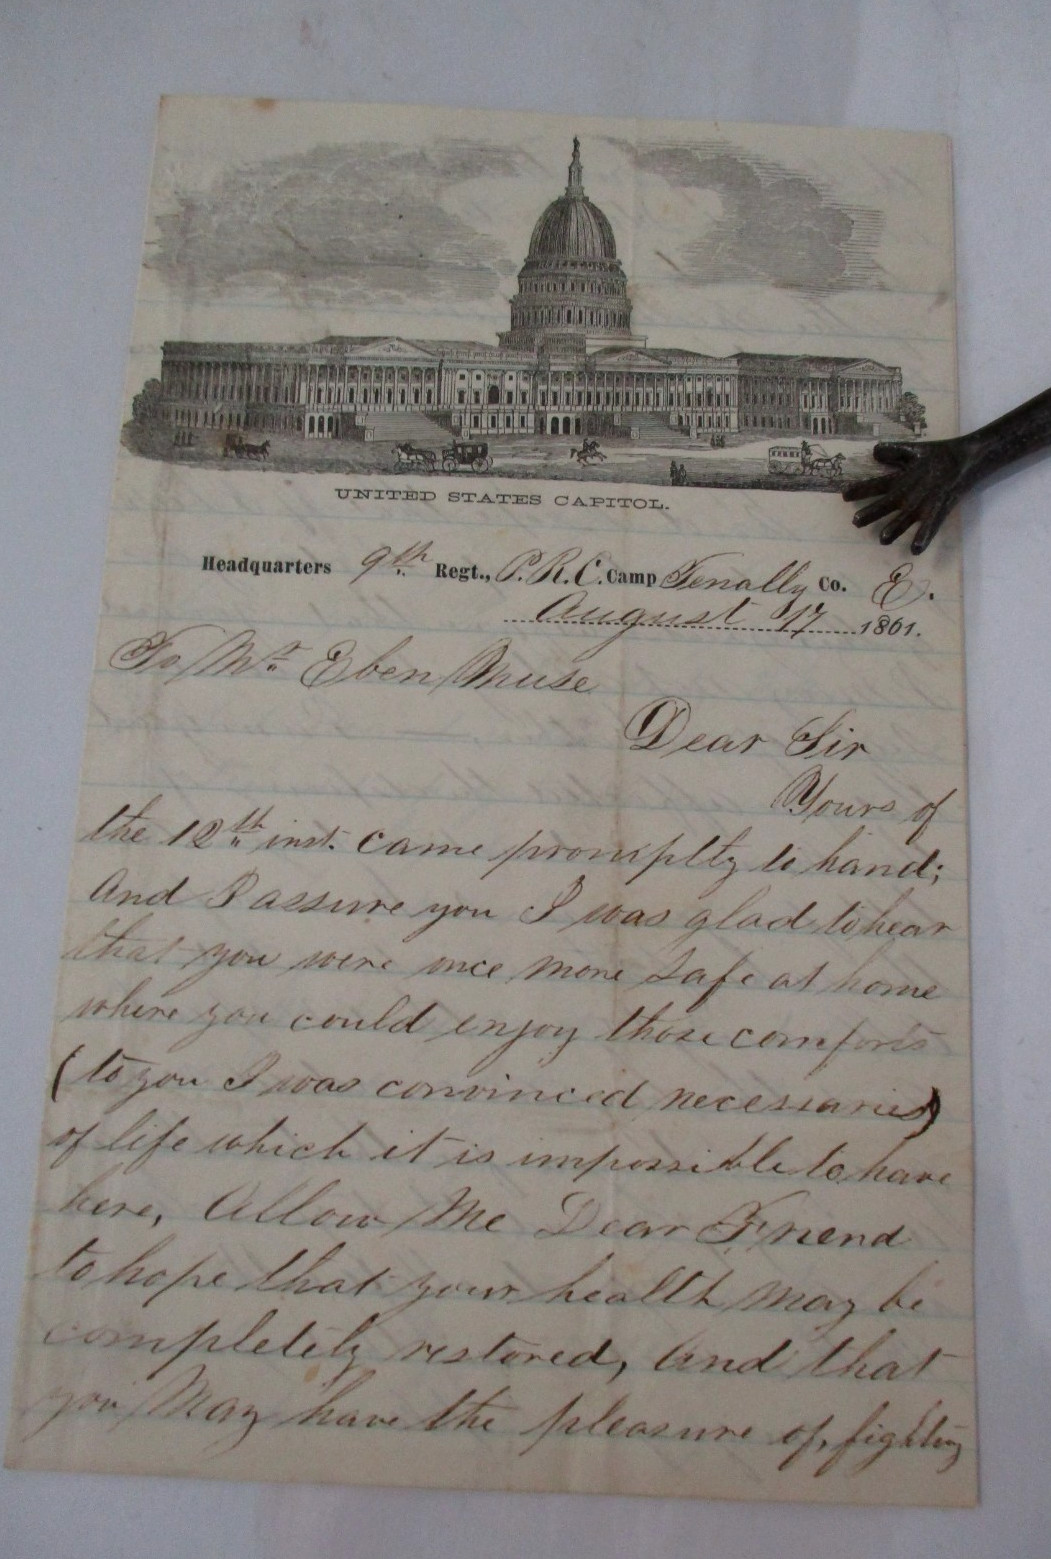 UNITED STATES CAPITOL.
Headquarters 9th Regt., P.R.C. Camp Tenally Co. E.
August 17 1861.
To Mr. Eben Muse
Dear Sir
Yours of
the 12th inst. came promplty to hand;
And I assure you I was glad to hear
that you were once more safe at home
where you could enjoy those comforts
(to you I was convinced necessaries)
of life which it is impossible to have
here, Allow Me Dear Friend
to hope that your health may be
completely restored, And that
you May have the pleasure of, fighting